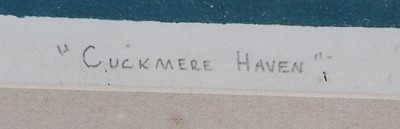 "CUCKMERE HAVEN";